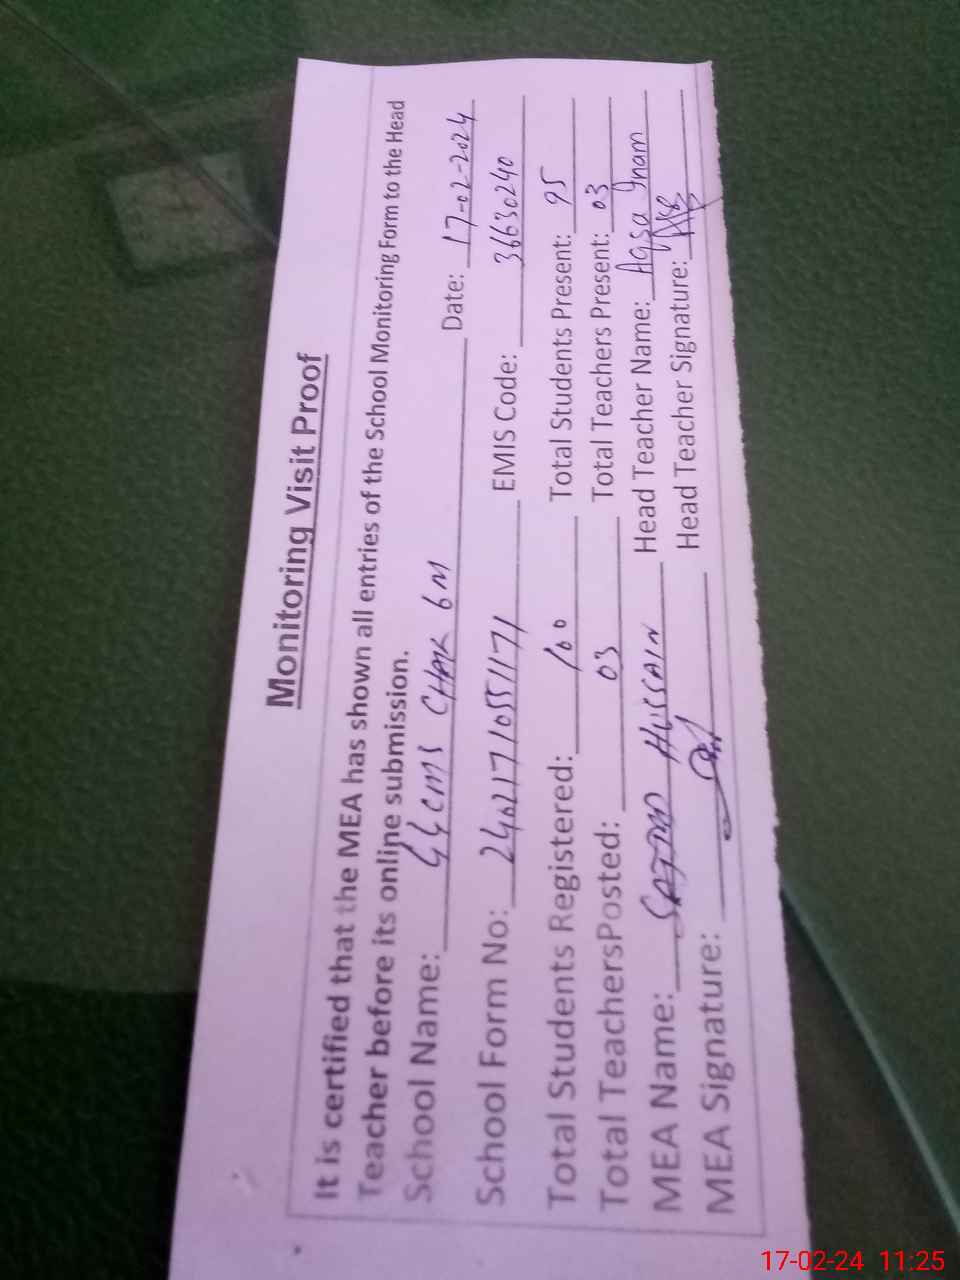 Monitoring Visit Proof
It is certified that the MEA has shown all entries of the School Monitoring Form to the Head
Teacher before its online submission.
School Name: GGCMS CHAK 6M Date: 17-02-2024
School Form No: 24021710551171 EMIS Code: 36630240
Total Students Registered: 100 Total Students Present: 95
Total TeachersPosted: 03 Total Teachers Present: 03
MEA Name: SAJJAD HUSSAIN Head Teacher Name: Aqsa Inam
MEA Signature: Head Teacher Signature:
17-02-24 11:25